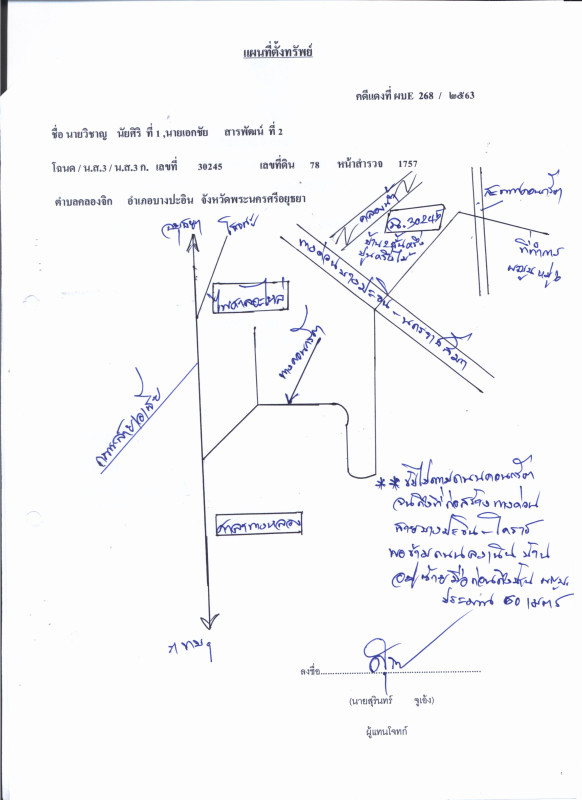 แผนที่ตั้งทรัพย์
คดีแดงที่ ผบE 268 / ๒๕63
ชื่อ นายวิชาญ นัยศิริ ที่ 1 ,นายเอกชัย สารพัฒน์ ที่ 2
โฉนด / น.ส.3 / น.ส.3 ก. เลขที่ 30245 เลขที่ดิน 78 หน้าสำรวจ 1757
ตำบลคลองจิก อำเภอบางปะอิน จังหวัดพระนครศรีอยุธยา
อยุธยา
คลองน้ำ
ฉ. 30245
บ้าน 2 ชั้นครึ่ง
ปูนครึ่งไม้
สะพานคอนกรีต
ที่ทำการ
ทางด่วนบางปะอิน - นครราชสีมา
ทางคอนกรีต
ศาลากลางหลอง
** ขับไปตามถนนคอนกรีต
จนถึงที่ก่อสร้างทางด่วน
สายบางปะอิน - โคราช
พอข้ามถนนลงเนิน บ้าน
อยู่ซ้ายมือก่อนถึง
ประมาณ ๕๐ เมตร
ลงชื่อ
(นายสุรินทร์ ชูเอ้ง)
ผู้แทนโจทก์